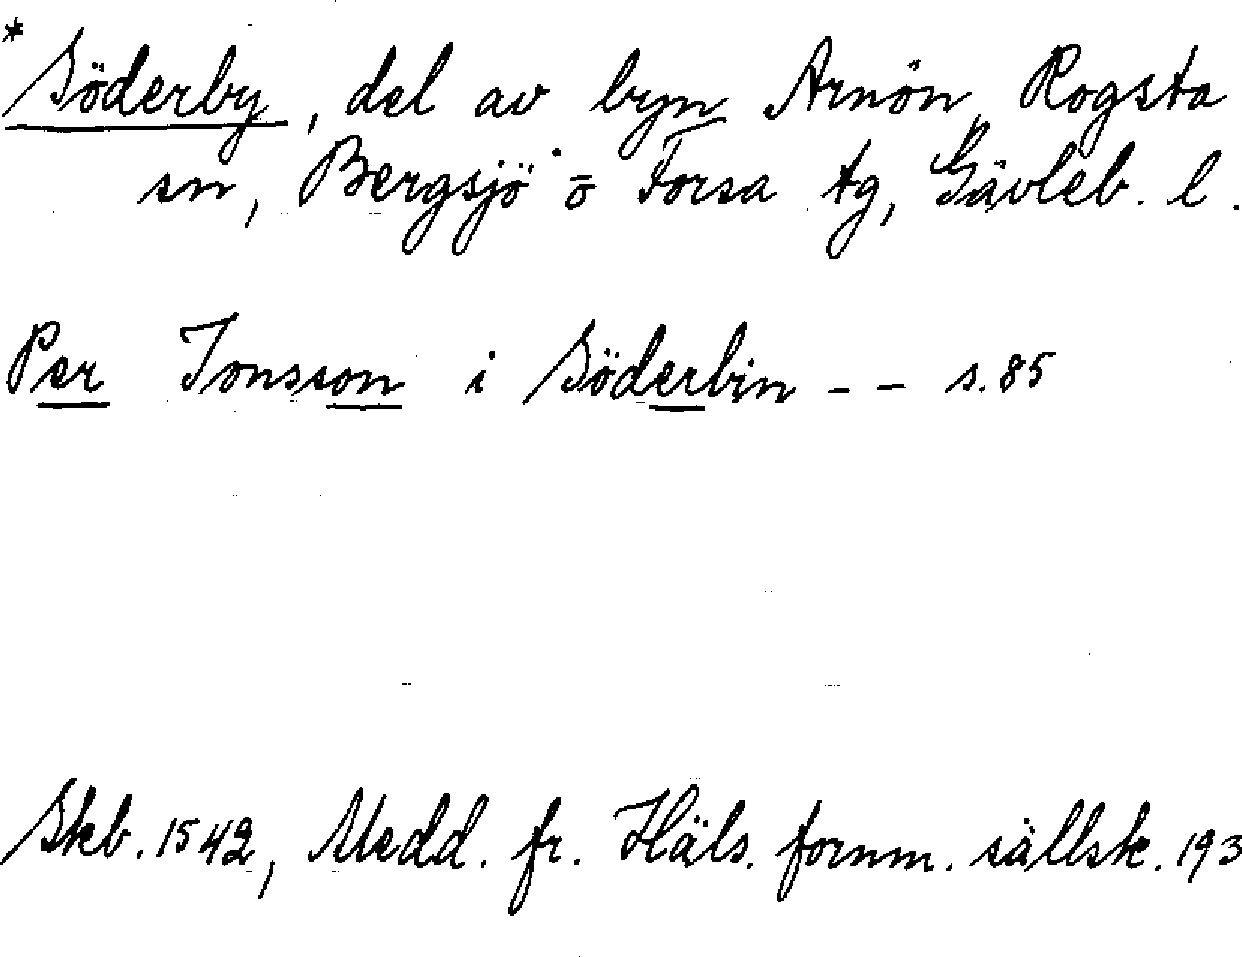 * Söderby, del av byn Arnön, Rogsta
sn, Bergsjö o Forsa tg, Gävleb. l.
Per Jonsson i Söderbin - - s. 85
Skb. 1542, Medd. fr. Häls. fornm. sällsk. 193